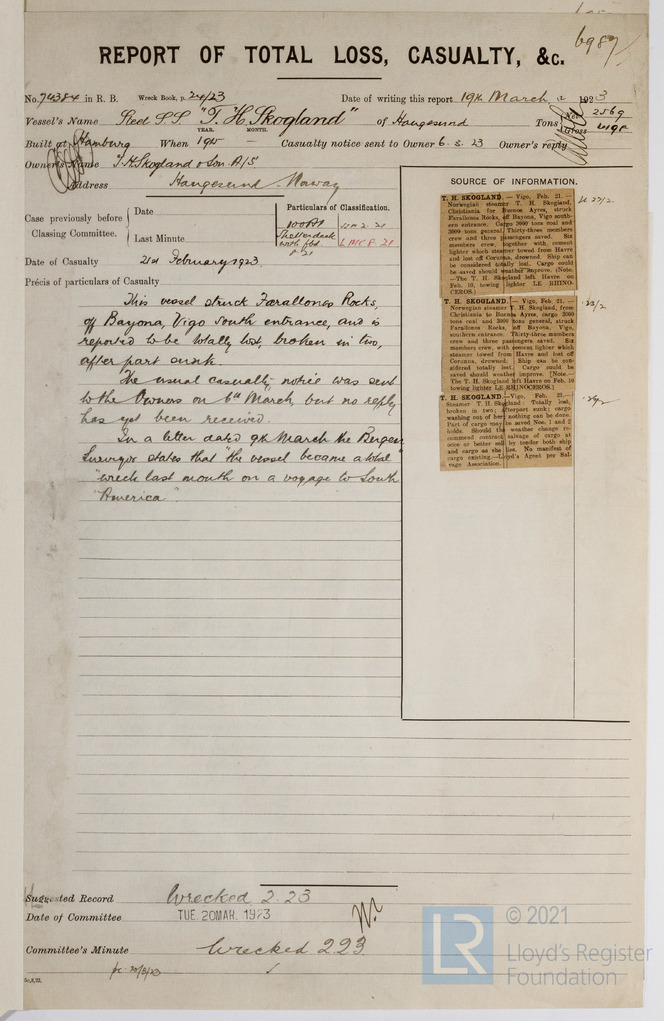 6987
REPORT OF TOTAL LOSS, CASUALTY, &c.
No. 74384 in R. B. Wreck Book, p. 24/23 Date of writing this report 19th March, 1923
Vessel's Name Steel S.S. "T. H. Skogland" of Haugesund Tons Net 2569
YEAR. MONTH. Gross
Built at Hamburg When – Casualty notice sent to Owner 6.3.23 Owner's reply
Owner's Name T. H. Skogland & Son A/S
Address Haugesund Norway
SOURCE OF INFORMATION.
Case previously before Classing Committee.
Date
Last Minute
Particulars of Classification.
100A1
Shelterdeck
with fbd
LMC 8.21
Date of Casualty 21st February 1923.
Précis of particulars of Casualty
This vessel struck Farallones Rocks,
off Bayona, Vigo South entrance, and is
reported to be totally lost, broken in two,
after part sunk.
The usual casualty notice was sent
to the Owners on 6th March but no reply
has yet been received.
In a letter dated 9th March the Bergen
Surveyor states that "the vessel became a total
"wreck last month on a voyage to South
"America".
T. H. SKOGLAND.—Vigo, Feb. 21.—
Norwegian steamer T. H. Skogland,
Christiania for Buenos Ayres, struck
Farallones Rocks, off Bayona, Vigo south-
ern entrance. Cargo 3000 tons coal and
3000 tons general. Thirty-three members
crew and three passengers saved. Six
members crew, together with cement
lighter which steamer towed from Havre
and lost off Corunna, drowned. Ship can
be considered totally lost. Cargo could
be saved should weather improve. [Note.
—The T. H. Skogland left Havre on
Feb. 10, towing lighter LE RHINO-
CEROS.]
T. H. SKOGLAND.—Vigo, Feb. 21.—
Norwegian steamer T. H. Skogland, from
Christiania to Buenos Ayres, cargo 3000
tons coal and 3000 tons general, struck
Farallones Rocks, off Bayona, Vigo,
southern entrance. Thirty-three members
crew and three passengers saved. Six
members crew, with cement lighter which
steamer towed from Havre and lost off
Corunna, drowned. Ship can be con-
sidered totally lost. Cargo could be
saved should weather improve. [Note.—
The T. H. Skogland left Havre on Feb. 10
towing lighter LE RHINOCEROS.]
T. H. SKOGLAND.—Vigo, Feb. 21.—
Steamer T. H. Skogland: Totally lost,
broken in two; afterpart sunk; cargo
washing out of her; nothing can be done.
Part of cargo may be saved Nos. 1 and 2
holds. Should the weather change re-
commend contract salvage of cargo at
once or better sell by tender both ship
and cargo as she lies. No manifest of
cargo existing.—Lloyd's Agent per Sal-
vage Association.
Suggested Record Wrecked 2.23
Date of Committee TUE. 20 MAR. 1923
Committee's Minute Wrecked 2.23
© 2021
LR
Lloyd's Register
Foundation